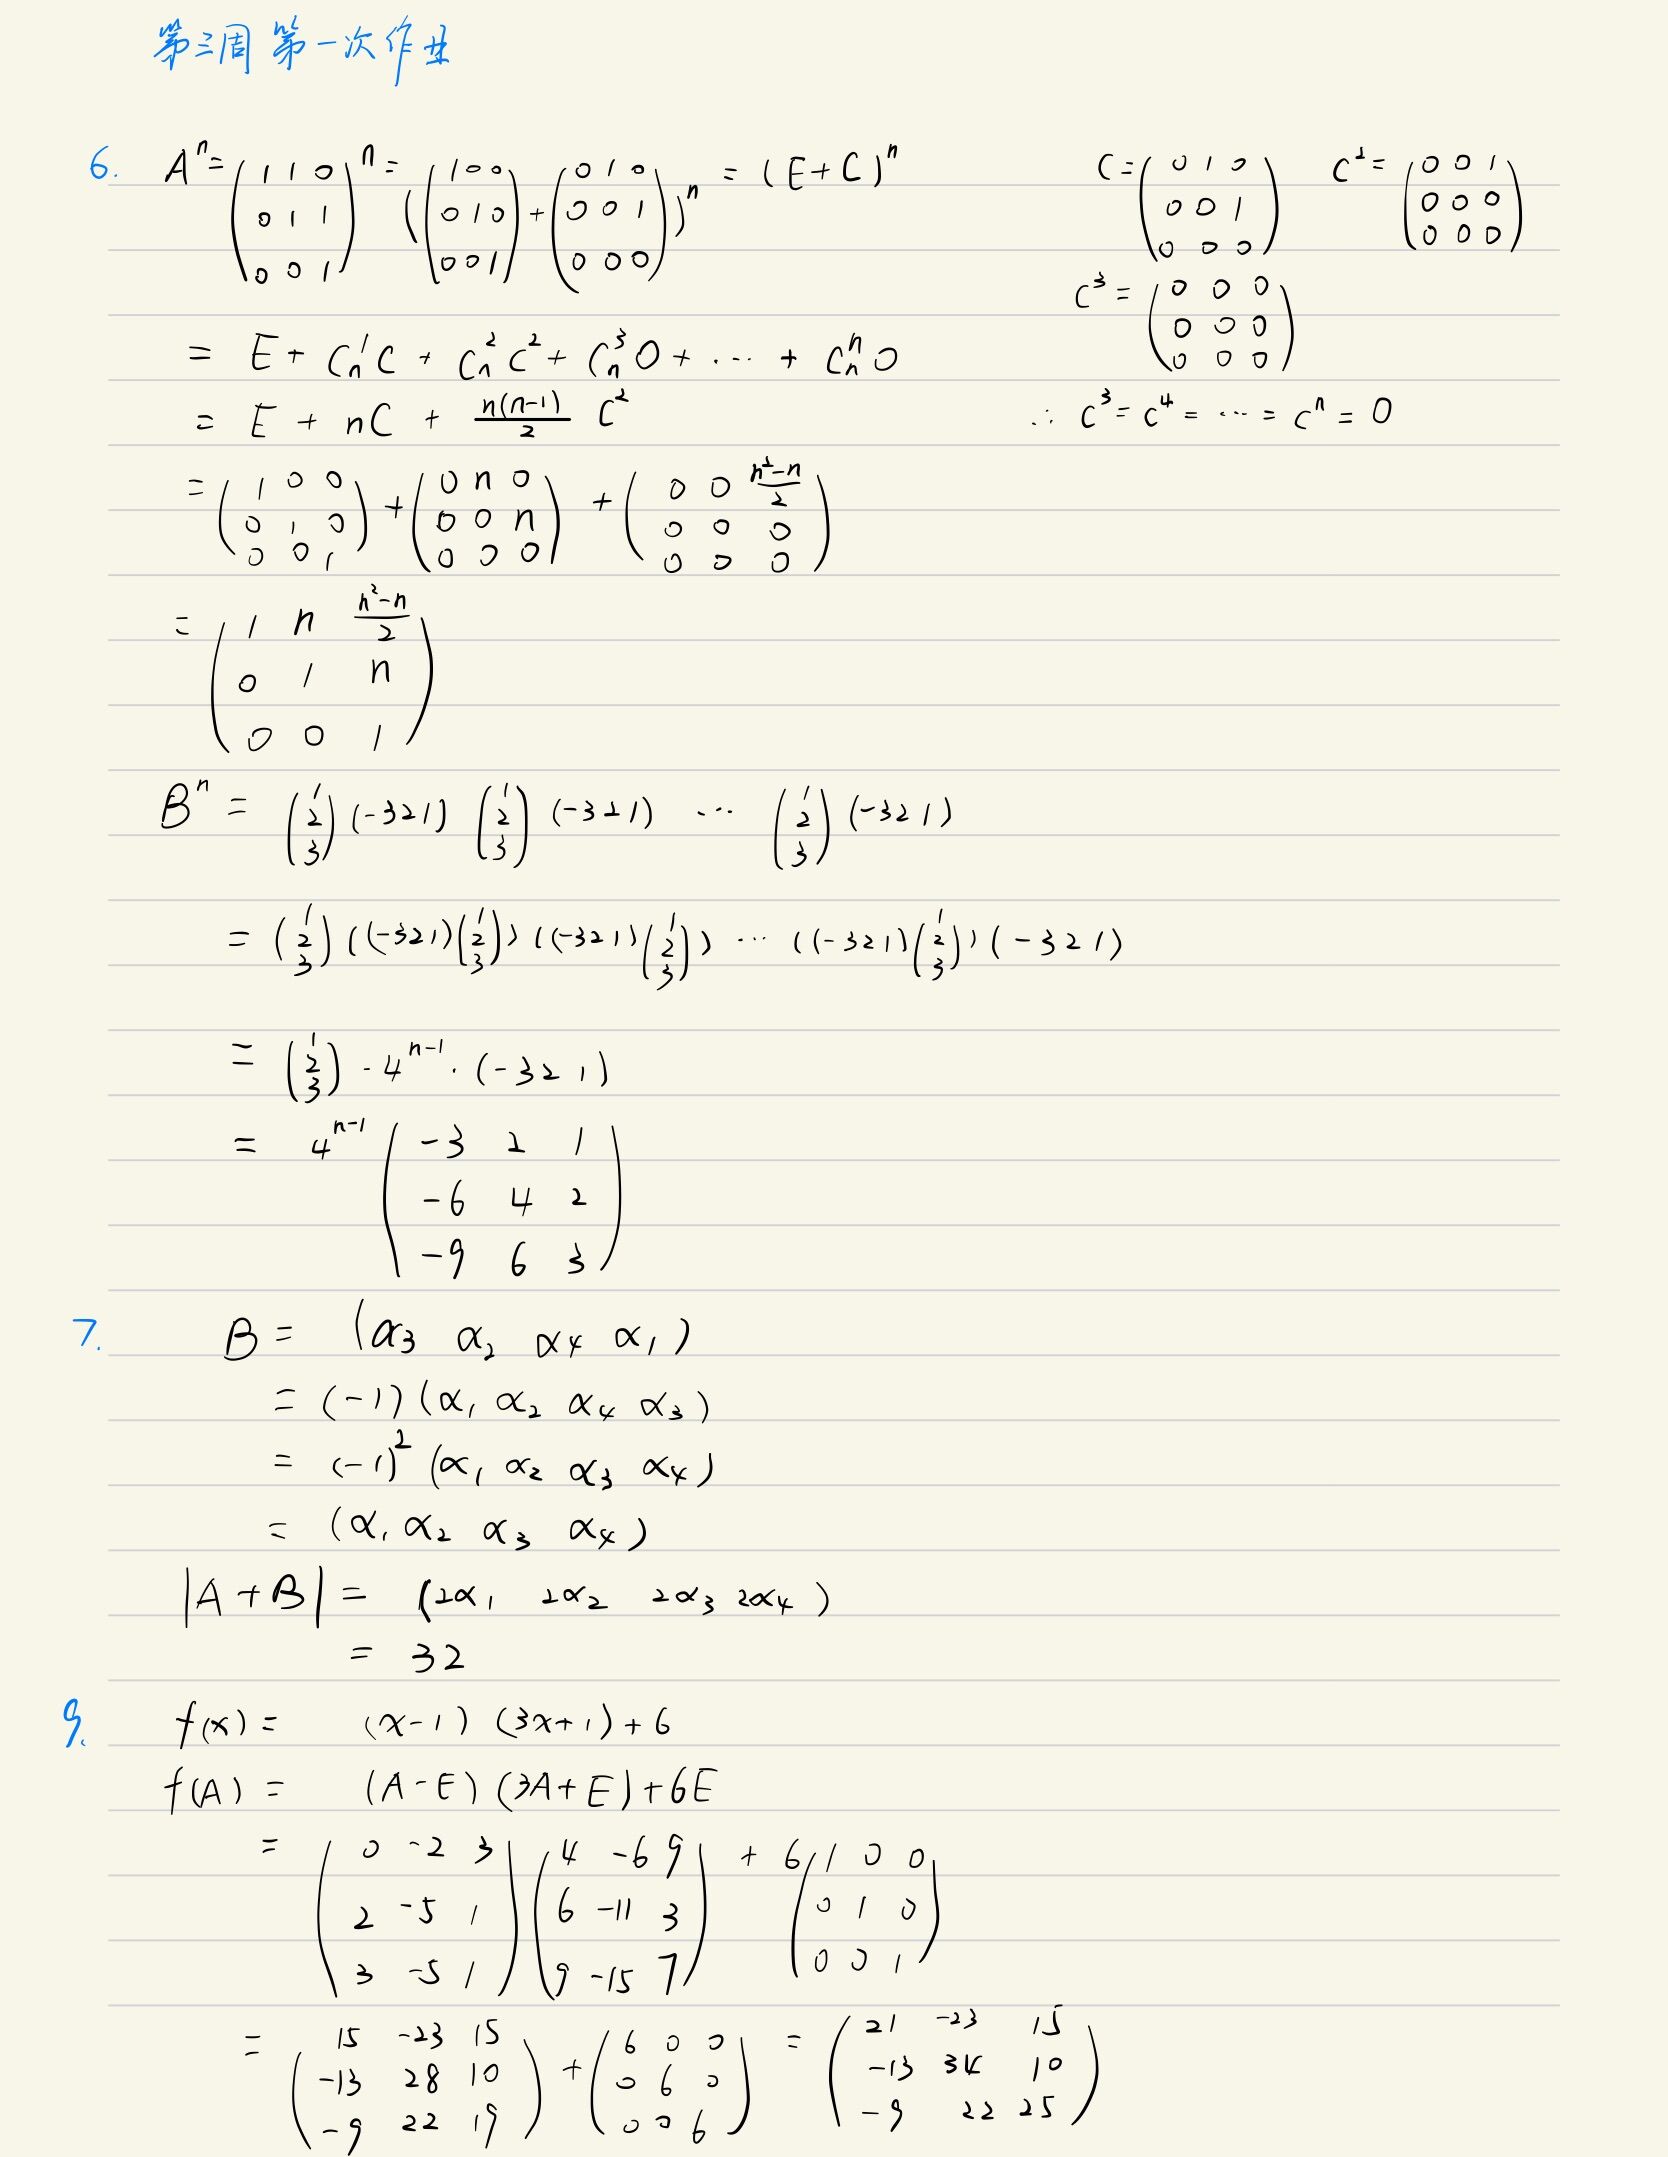 第三周 第一次作业
6. Aⁿ = (1 1 0; 0 1 1; 0 0 1)ⁿ = ((1 0 0; 0 1 0; 0 0 1) + (0 1 0; 0 0 1; 0 0 0))ⁿ = (E+C)ⁿ
C = (0 1 0; 0 0 1; 0 0 0) C² = (0 0 1; 0 0 0; 0 0 0)
C³ = (0 0 0; 0 0 0; 0 0 0)
∴ C³ = C⁴ = ··· = Cⁿ = 0
= E + C_n^1 C + C_n^2 C² + C_n^3 O + ··· + C_n^n O
= E + nC + n(n-1)/2 C²
= (1 0 0; 0 1 0; 0 0 1) + (0 n 0; 0 0 n; 0 0 0) + (0 0 (n²-n)/2; 0 0 0; 0 0 0)
= (1 n (n²-n)/2; 0 1 n; 0 0 1)
Bⁿ = (1; 2; 3) (-3 2 1) (1; 2; 3) (-3 2 1) ··· (1; 2; 3) (-3 2 1)
= (1; 2; 3) ((-3 2 1)(1; 2; 3)) ((-3 2 1)(1; 2; 3)) ··· ((-3 2 1)(1; 2; 3)) (-3 2 1)
= (1; 2; 3) · 4^(n-1) · (-3 2 1)
= 4^(n-1) (-3 2 1; -6 4 2; -9 6 3)
7. B = (α₃ α₂ α₄ α₁)
= (-1) (α₁ α₂ α₄ α₃)
= (-1)² (α₁ α₂ α₃ α₄)
= (α₁ α₂ α₃ α₄)
|A+B| = (2α₁ 2α₂ 2α₃ 2α₄)
= 32
9. f(x) = (x-1) (3x+1) + 6
f(A) = (A-E) (3A+E) + 6E
= (0 -2 3; 2 -5 1; 3 -5 1) (4 -6 9; 6 -11 3; 9 -15 7) + 6 (1 0 0; 0 1 0; 0 0 1)
= (15 -23 15; -13 28 10; -9 22 19) + (6 0 0; 0 6 0; 0 0 6) = (21 -23 15; -13 34 10; -9 22 25)